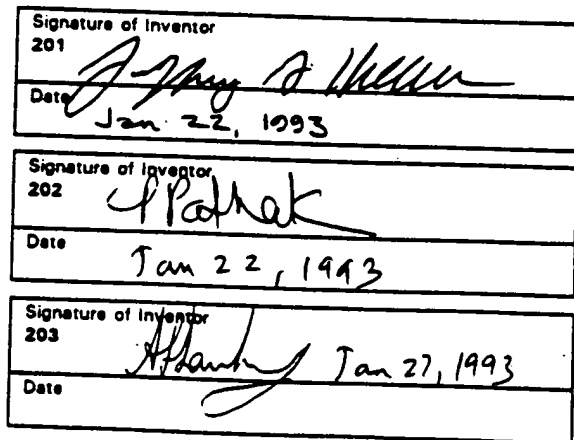 Signature of Inventor
201
Date
Jan 22, 1993
Signature of Inventor
202
P Pathak
Date
Jan 22, 1993
Signature of Inventor
203
Jan 27, 1993
Date